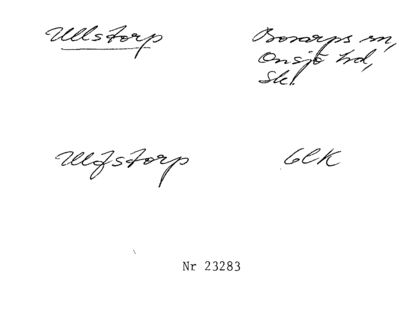 Ullstorp
Bosarps sn,
Onsjö hd,
Sk.
Ulfstorp
GLK
Nr 23283